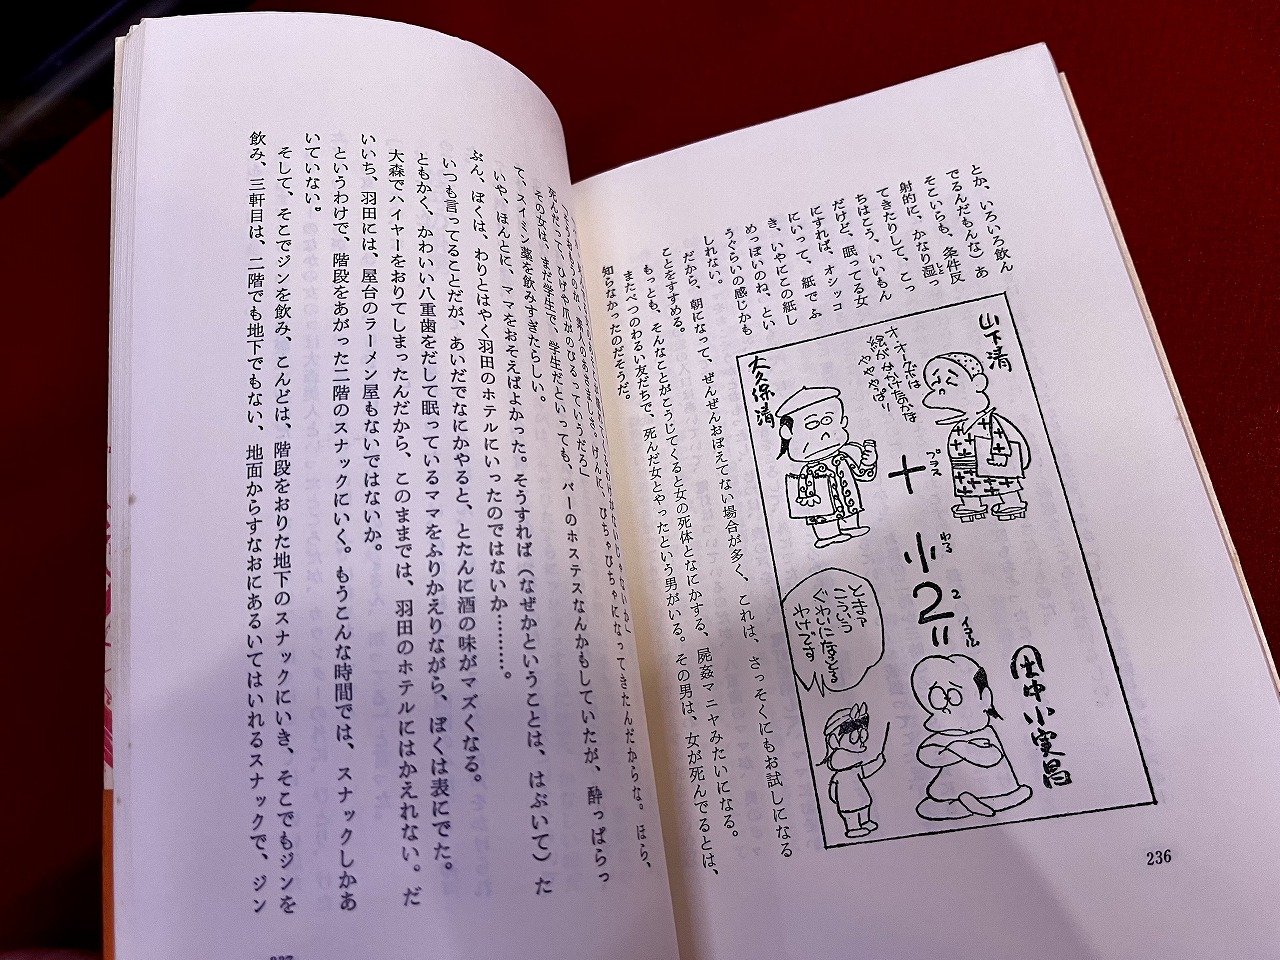 とか、いろいろ飲ん
でるんだもんな）あ
そこいらも、条件反
射的に、かなり湿っ
てきたりして、こっ
ちはこう、いいもん
だけど、眠ってる女
にすれば、オシッコ
にいって、紙でふ
き、いやにこの紙し
めっぽいのね、とい
うぐらいの感じかも
しれない。
だから、朝になって、ぜんぜんおぼえてない場合が多く、これは、さっそくにもお試しになる
ことをすすめる。
もっとも、そんなことがこうじてくると女の死体となにかする、屍姦マニヤみたいになる。
またべつのわるい友だちで、死んだ女とやったという男がいる。その男は、女が死んでるとは、
知らなかったのだそうだ。
山下清
オ、オクボは
絵がかけたのかな
やややっぱり
大久保清
プラス
＋
わる
÷
2
2
イコール
＝
田中小実昌
とまァ
こういう
ぐわいになっとる
わけです
236
けんに、びちゃびちゃになってきたんだからな。ほら、
死んだって、ひげや爪がのびるっていうだろ」
その女は、まだ学生で、学生だといっても、バーのホステスなんかもしていたが、酔っぱらっ
て、スイミン薬を飲みすぎたらしい。
いや、ほんとに、ママをおそえばよかった。そうすれば（なぜかということは、はぶいて）た
ぶん、ぼくは、わりとはやく羽田のホテルにいったのではないか………。
いつも言ってることだが、あいだでなにかやると、とたんに酒の味がマズくなる。
ともかく、かわいい八重歯をだして眠っているママをふりかえりながら、ぼくは表にでた。
大森でハイヤーをおりてしまったんだから、このままでは、羽田のホテルにはかえれない。だ
いいち、羽田には、屋台のラーメン屋もないではないか。
というわけで、階段をあがった二階のスナックにいく。もうこんな時間では、スナックしかあ
いていない。
そして、そこでジンを飲み、こんどは、階段をおりた地下のスナックにいき、そこでもジンを
飲み、三軒目は、二階でも地下でもない、地面からすなおにあるいてはいれるスナックで、ジン